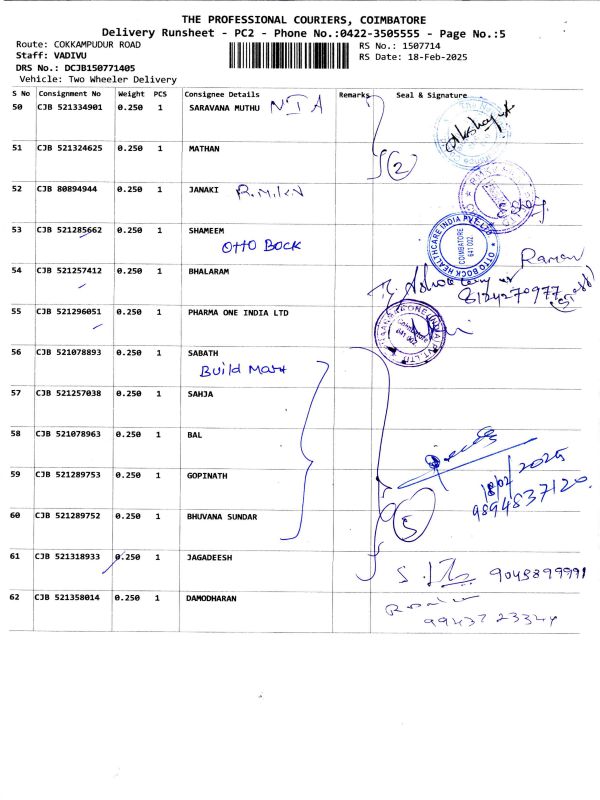 THE PROFESSIONAL COURIERS, COIMBATORE
Delivery Runsheet - PC2 - Phone No.:0422-3505555 - Page No.:5
Route: COKKAMPUDUR ROAD
RS No.: 1507714
Staff: VADIVU
RS Date: 18-Feb-2025
DRS No.: DCJB150771405
Vehicle: Two Wheeler Delivery
S No Consignment No Weight PCS Consignee Details Remarks Seal & Signature
50 CJB 521334901 0.250 1 SARAVANA MUTHU NIA
51 CJB 521324625 0.250 1 MATHAN
2
52 CJB 80894944 0.250 1 JANAKI R.M.KN
53 CJB 521285662 0.250 1 SHAMEEM
OTTO BOCK
OTTO BOCK HEALTHCARE INDIA PVT LTD
COIMBATORE
641 002
54 CJB 521257412 0.250 1 BHALARAM
Raman
8124270977
55 CJB 521296051 0.250 1 PHARMA ONE INDIA LTD
Coimbatore
641 002
56 CJB 521078893 0.250 1 SABATH
Build Mart
57 CJB 521257038 0.250 1 SAHJA
58 CJB 521078963 0.250 1 BAL
18/02/2025
59 CJB 521289753 0.250 1 GOPINATH
9894837120
60 CJB 521289752 0.250 1 BHUVANA SUNDAR
5
61 CJB 521318933 0.250 1 JAGADEESH
9043899991
62 CJB 521358014 0.250 1 DAMODHARAN
9943723344